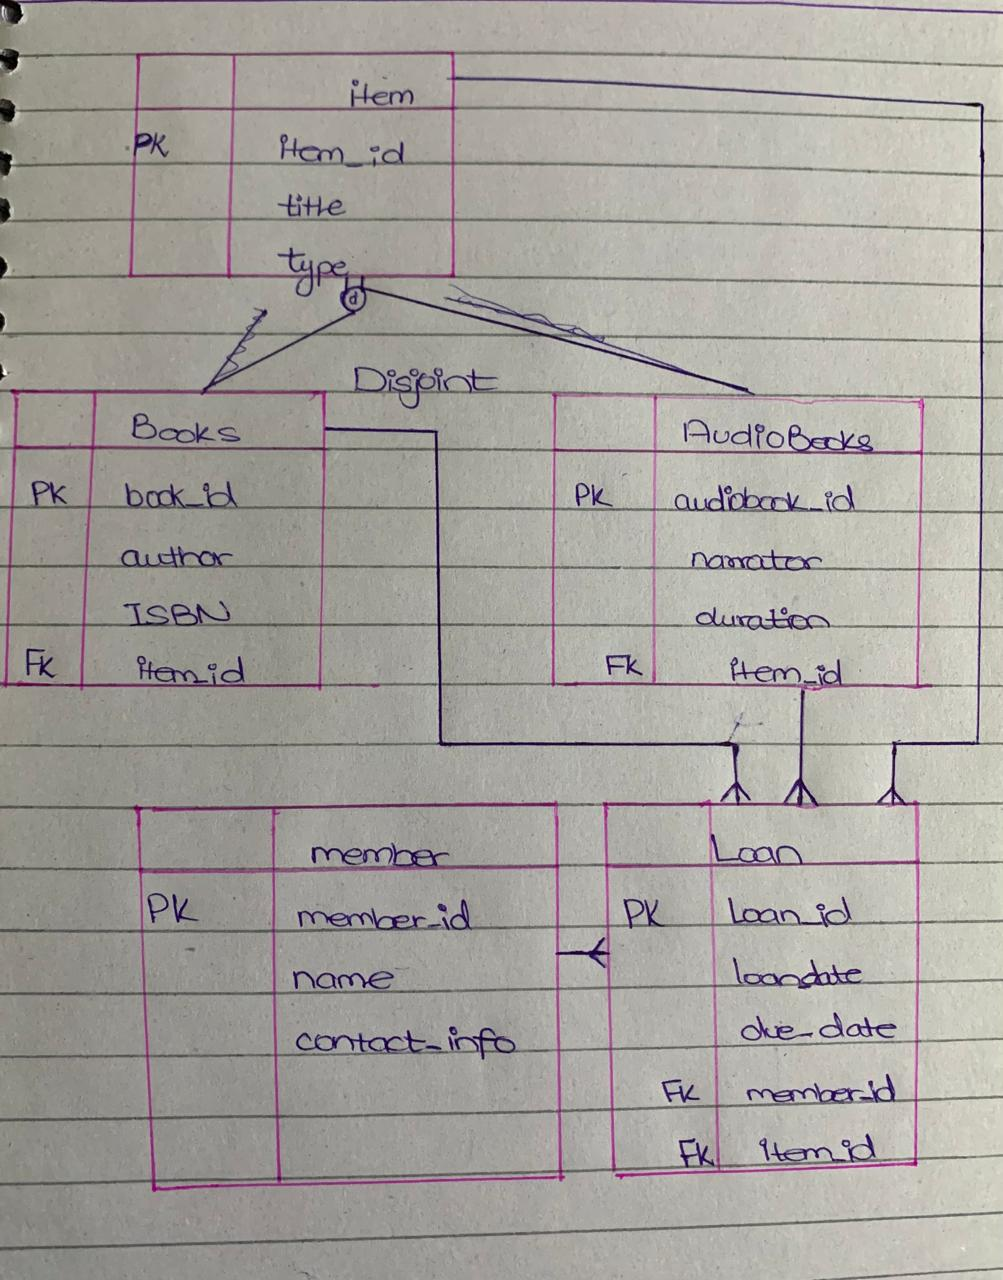 item
PK item_id
title
type
d
Disjoint
Books
PK book_id
author
ISBN
FK item_id
AudioBooks
PK audiobook_id
narrator
duration
FK item_id
member
PK member_id
name
contact_info
Loan
PK Loan_id
loandate
due_date
FK member_id
FK item_id